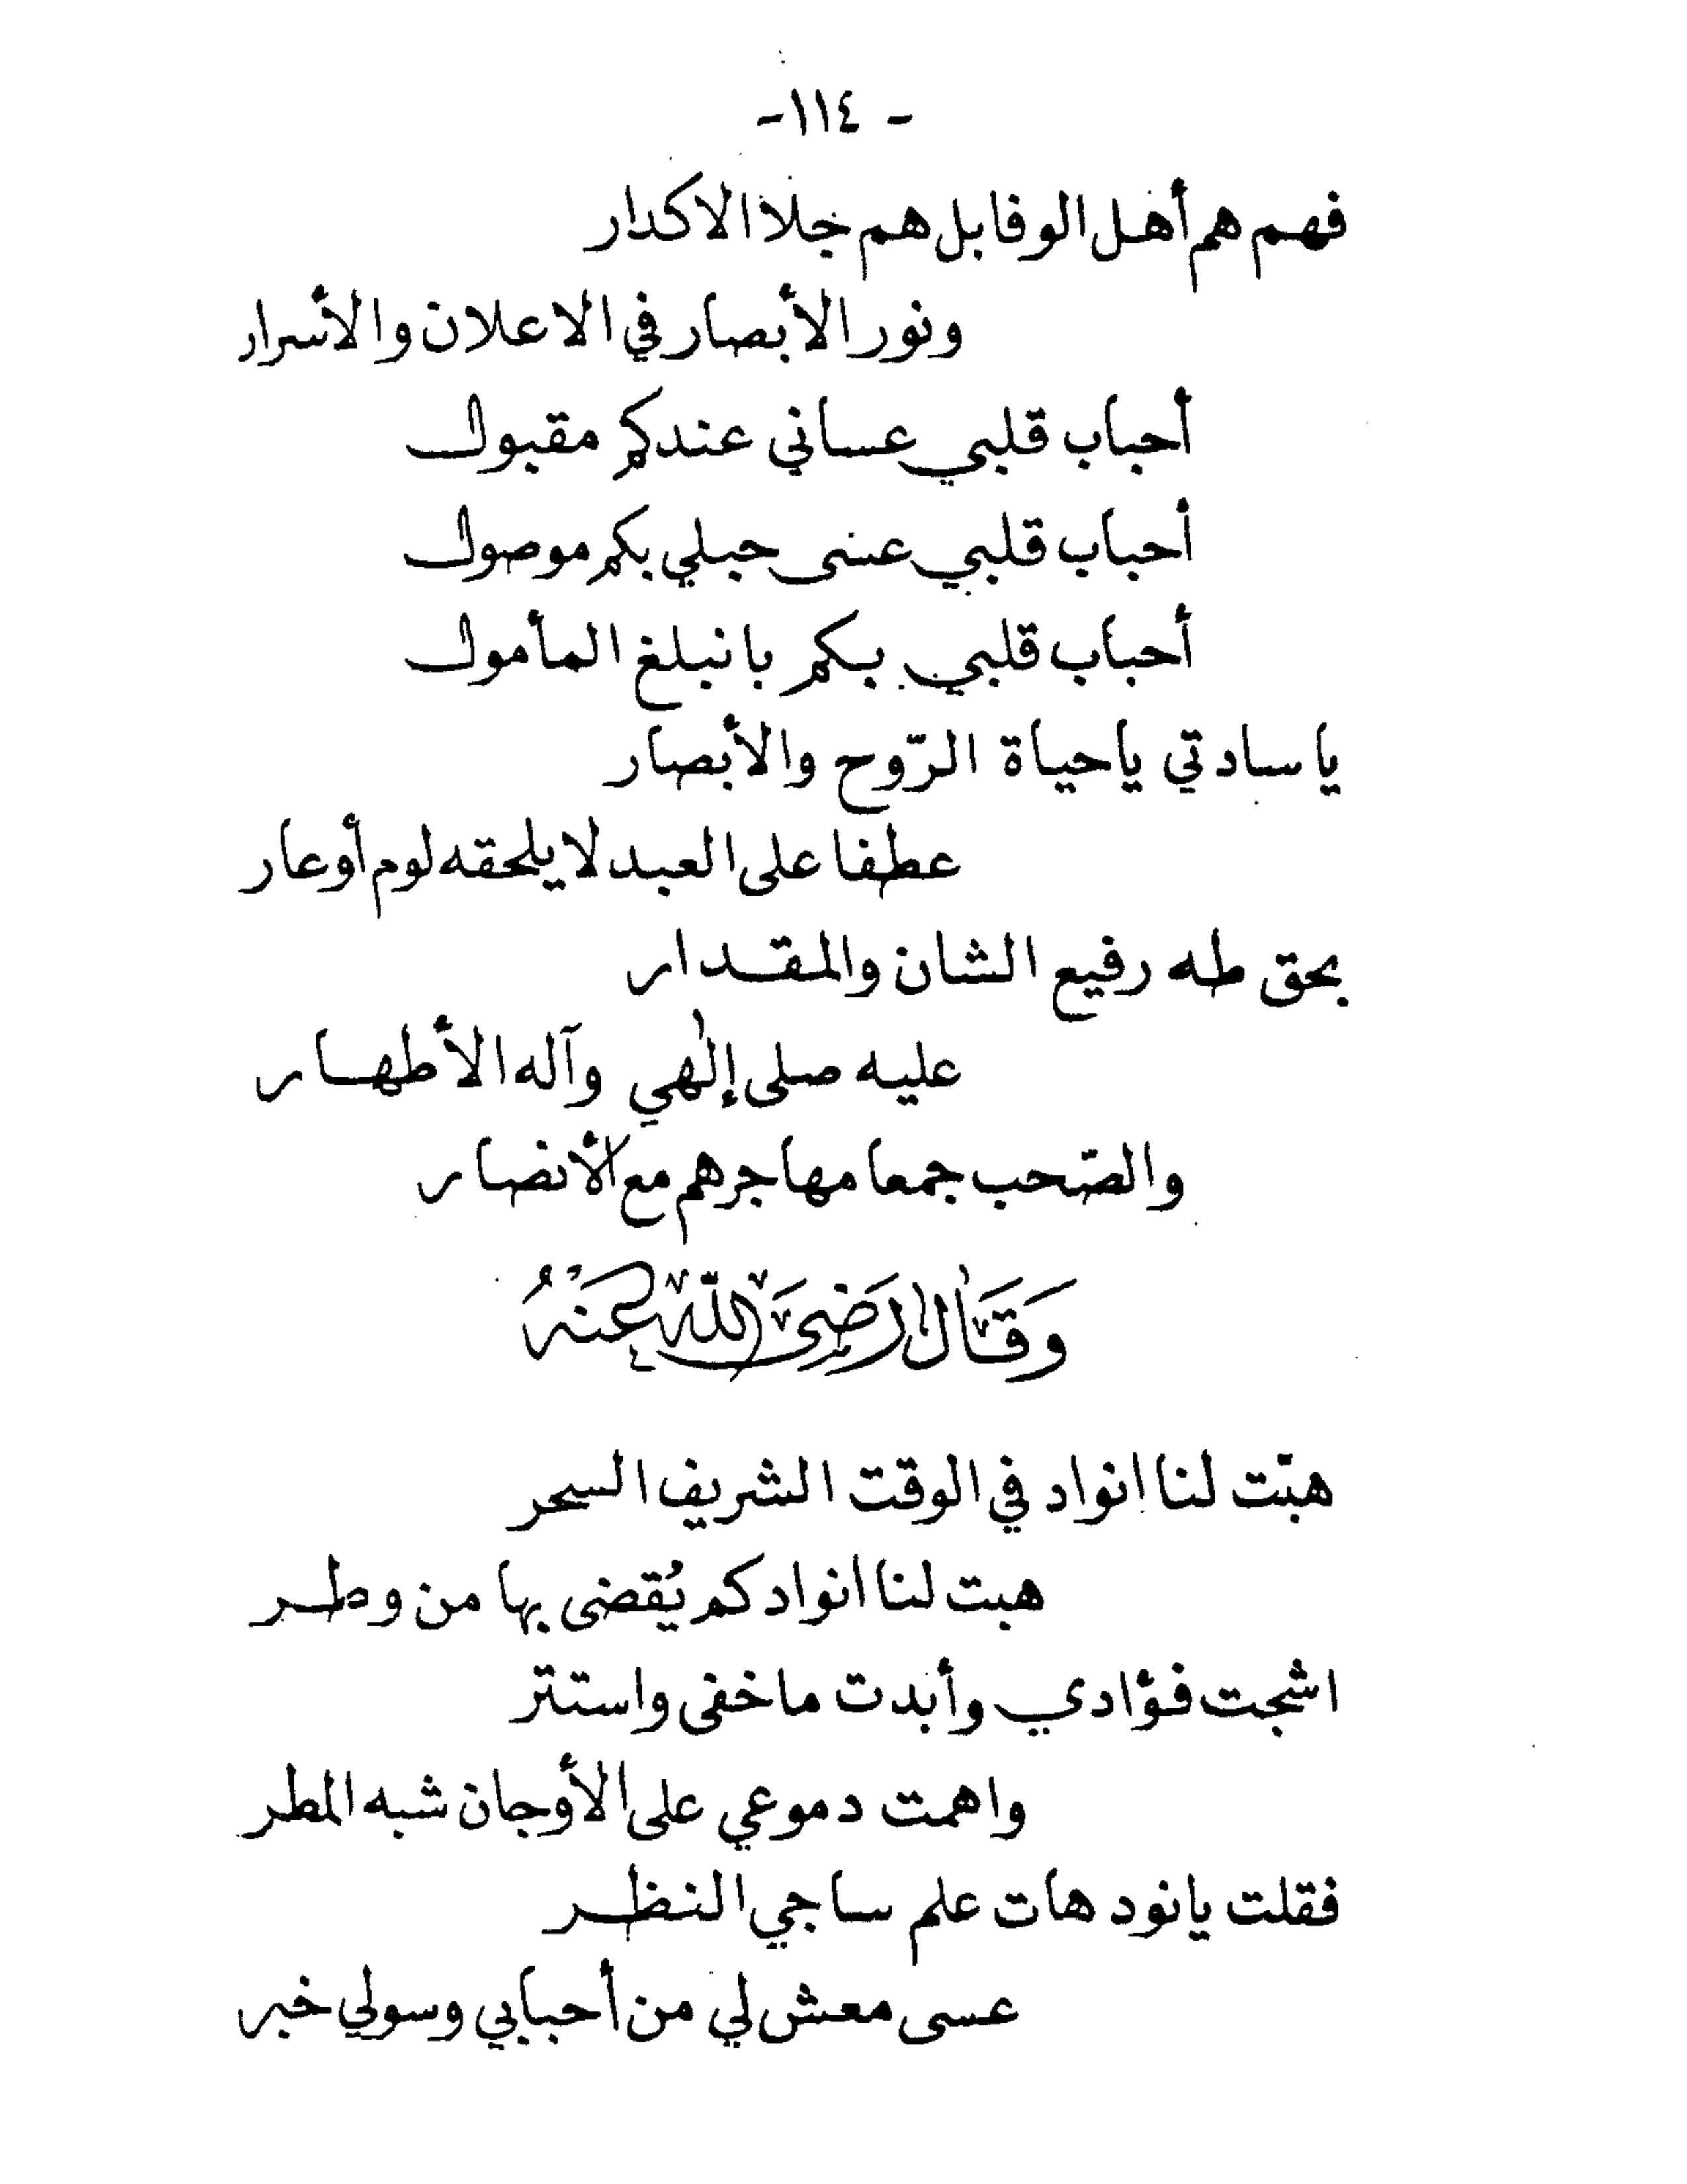 - ١١٤ -
فهم هم أهل الوفا بل هم جلا الاكدار
ونور الأبصار في الاعلان والأسرار
أحباب قلبي عساني عندكم مقبول
أحباب قلبي عسى حبلي بكم موصول
أحباب قلبي بكم بانبلغ المأمول
يا سادتي يا حياة الرّوح والأبصار
عطفا على العبد لا يلحقه لوم أو عار
بحق طه رفيع الشان والمقدار
عليه صلى إلٰهي وآله الأطهار
والصّحب جمعا مهاجرهم مع الأنصار
وَقَالَ رَضِيَ اللّٰه عَنْهُ
هبّت لنا انواد في الوقت الشريف السحر
هبت لنا انواد كم يُقضى بها من وطر
اشجت فؤادي وأبدت ما خفى واستتر
واهمت دموعي على الأوجان شبه المطر
فقلت يا نود هات علم ساجي النظر
عسى معش لي من أحبابي وسولي خبر